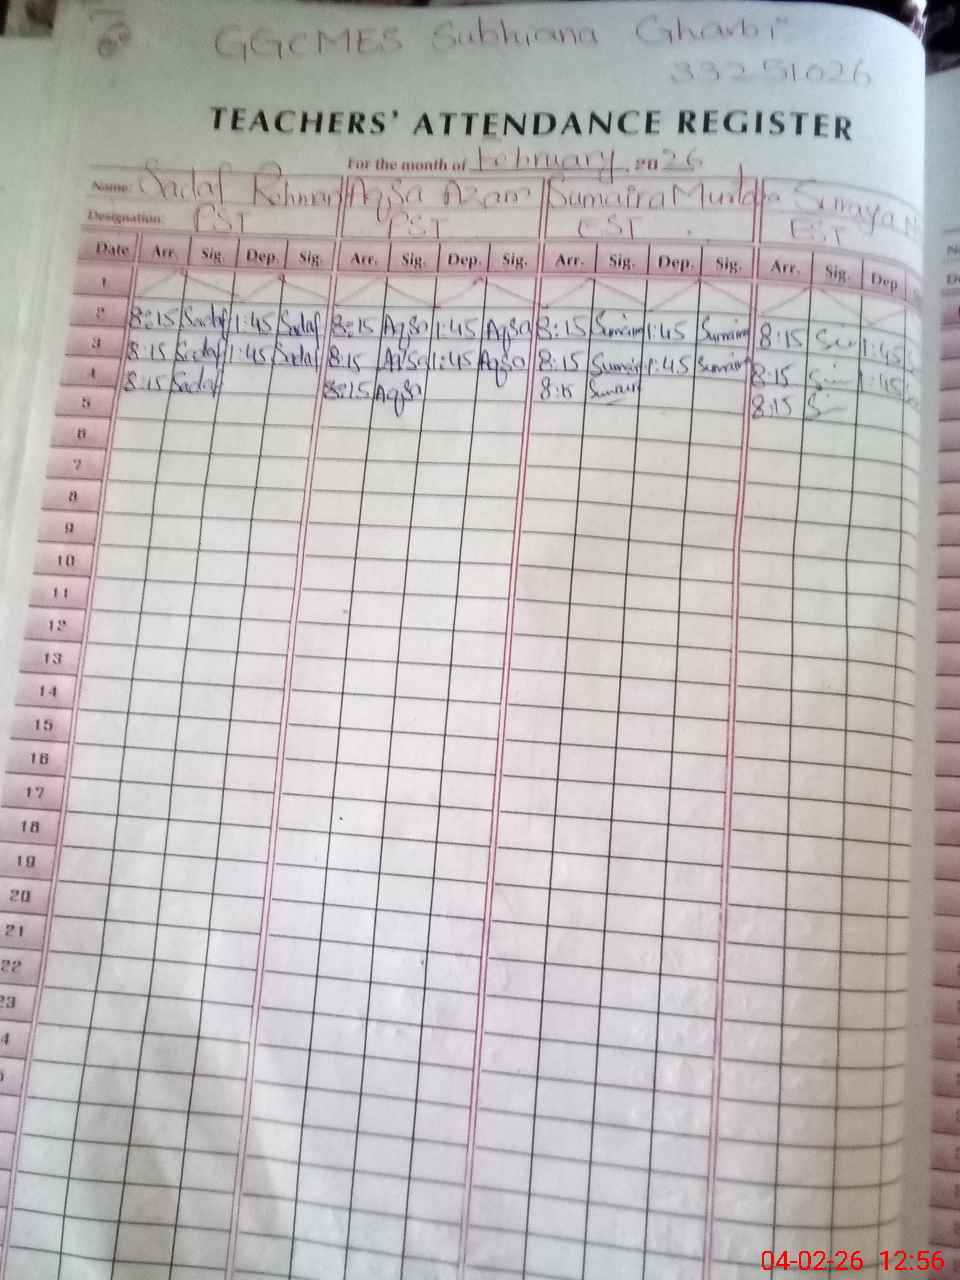 GGCMES Subhiana Gharbi
33251026
TEACHERS' ATTENDANCE REGISTER
For the month of February 2026
Name: Sadaf Rehman Aqsa Azam Sumaira Suraya
Designation: PST PST EST EST
Date Arr. Sig. Dep. Sig. Arr. Sig. Dep. Sig. Arr. Sig. Dep. Sig. Arr. Sig. Dep
1
2 8:15 Sadaf 1:45 Sadaf 8:15 Aqsa 1:45 Aqsa 8:15 Sumaira 1:45 Sumaira 8:15 1:45
3 8:15 Sadaf 1:45 Sadaf 8:15 Aqsa 1:45 Aqsa 8:15 Sumaira 1:45 Sumaira 8:15 1:45
4 8:15 Sadaf 8:15 Aqsa 8:15 Sumaira 8:15
5
6
7
8
9
10
11
12
13
14
15
16
17
18
19
20
21
22
23
4
04-02-26 12:56